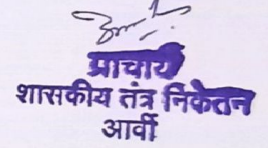 प्राचार्य
शासकीय तंत्र निकेतन
आर्वी